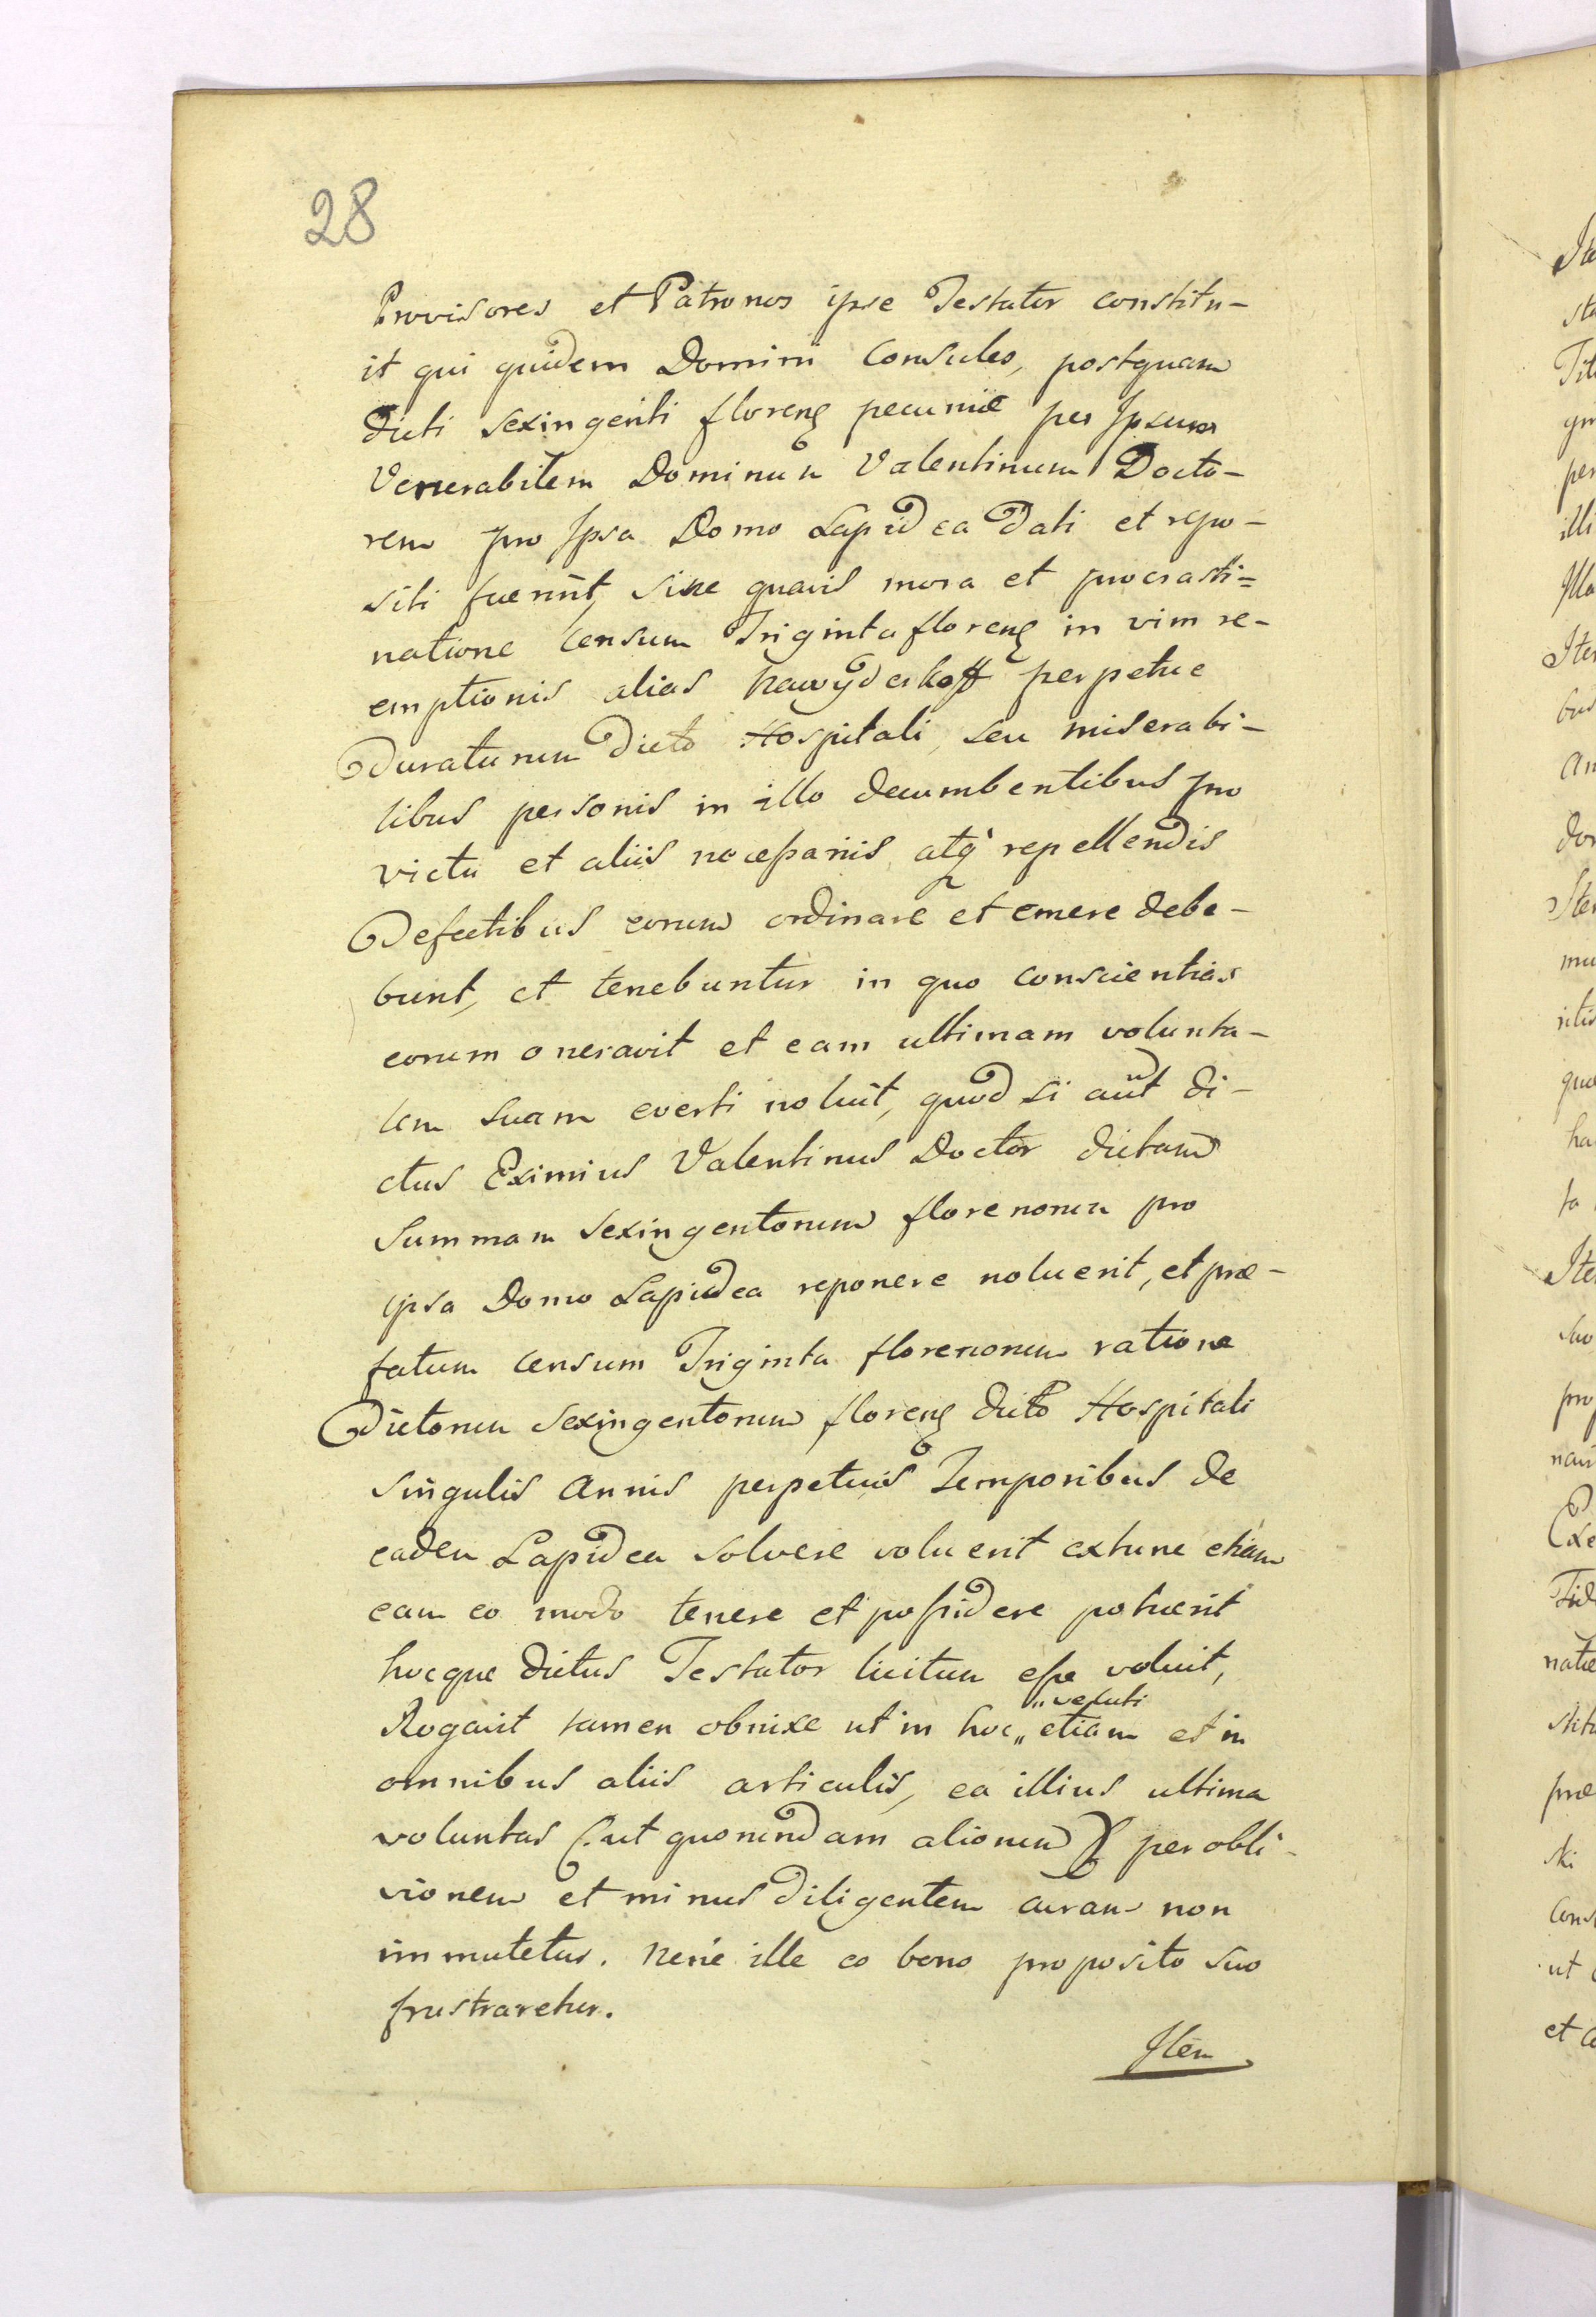 28
Provisores et Patronos ipse Testator constitu-
it qui quidem Domini Consules, postquam
dicti sexingenti florenę pecuniæ per Ipsum
Venerabilem Dominum Valentinum Docto-
rem pro Ipsa Domo Lapidea dati et repo-
siti fuerint, sine quavis mora et procrasti=
natione censum Triginta florenę in vim re-
emptionis alias perpetue
Duraturum dicto Hospitali, seu miserabi-
libus personis in illo decumbentibus pro
victu et aliis necessariis atq repellendis
Defectibus eorum ordinare et emere debe-
bunt, et tenebuntur in quo conscientias
eorum oneravit et eam ultimam volunta-
tem suam everti noluit, quod si aut di-
ctus Eximius Valentinus Doctor dictam
Summam sexingentorum florenorum pro
ipsa Domo Lapidea reponere noluerit, et præ-
fatum censum Triginta florenorum ratione
Dictorum sexingentorum florenę dicto Hospitali
singulis annis perpetuis Temporibus de
eadem Lapidea solvere voluerit extunc etiam
eam eo modo tenere et possidere potuerit
hocque dictus Testator licitum esse voluit,
Rogavit tamen obnixe ut in hoc „ etiam et in
„ veluti
omnibus aliis articulis, ea illius ultima
voluntas (: ut quorundam aliorum :) per obli-
vionem et minus diligentem curam non
immutetur. ne ille eo bono proposito suo
frustraretur.
Item